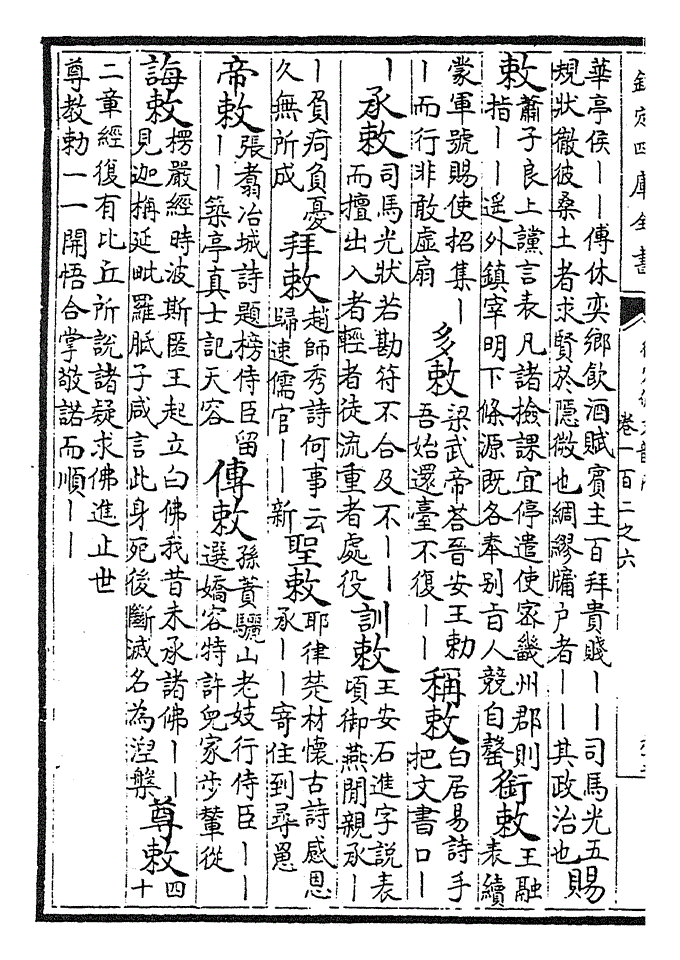 欽定四庫全書
卷一百二之六
華亭侯——傅休奕鄉飲酒賦賓主百拜貴賤——司馬光五
規狀徹彼桑土者求賢於隱微也綢繆牖户者——其政治也
賜
敕
蕭子良上讜言表凡諸檢課宜停遣使宻畿州郡則
指——遥外鎮宰明下條源既各奉别旨人競自罄
銜敕
王融
表續
蒙軍號賜使招集—
—而行非敢虚扇
多敕
梁武帝荅晉安王勅
吾始還臺不復——
稱敕
白居易詩手
把文書口—
—
承敕
司馬光狀若勘符不合及不——
而擅出入者輕者徒流重者處役
訓敕
王安石進字説表
頃御燕閒親承—
—負疴負憂
久無所成
拜敕
趙師秀詩何事云
歸速儒官——新
聖敕
耶律楚材懷古詩感恩
承——寄住到尋罳
帝敕
張翥冶城詩題榜侍臣留
——築亭真士記天容
傳敕
孫蕡驪山老妓行侍臣——
選嬌容特許兒家步輦從
誨敕
楞嚴經時波斯匿王起立白佛我昔未承諸佛——
見迦栴延毗羅胝子咸言此身死後斷滅名為涅槃
尊敕
四
十
二章經復有比丘所説諸疑求佛進止世
尊教勅一一開悟合掌敬諾而順——